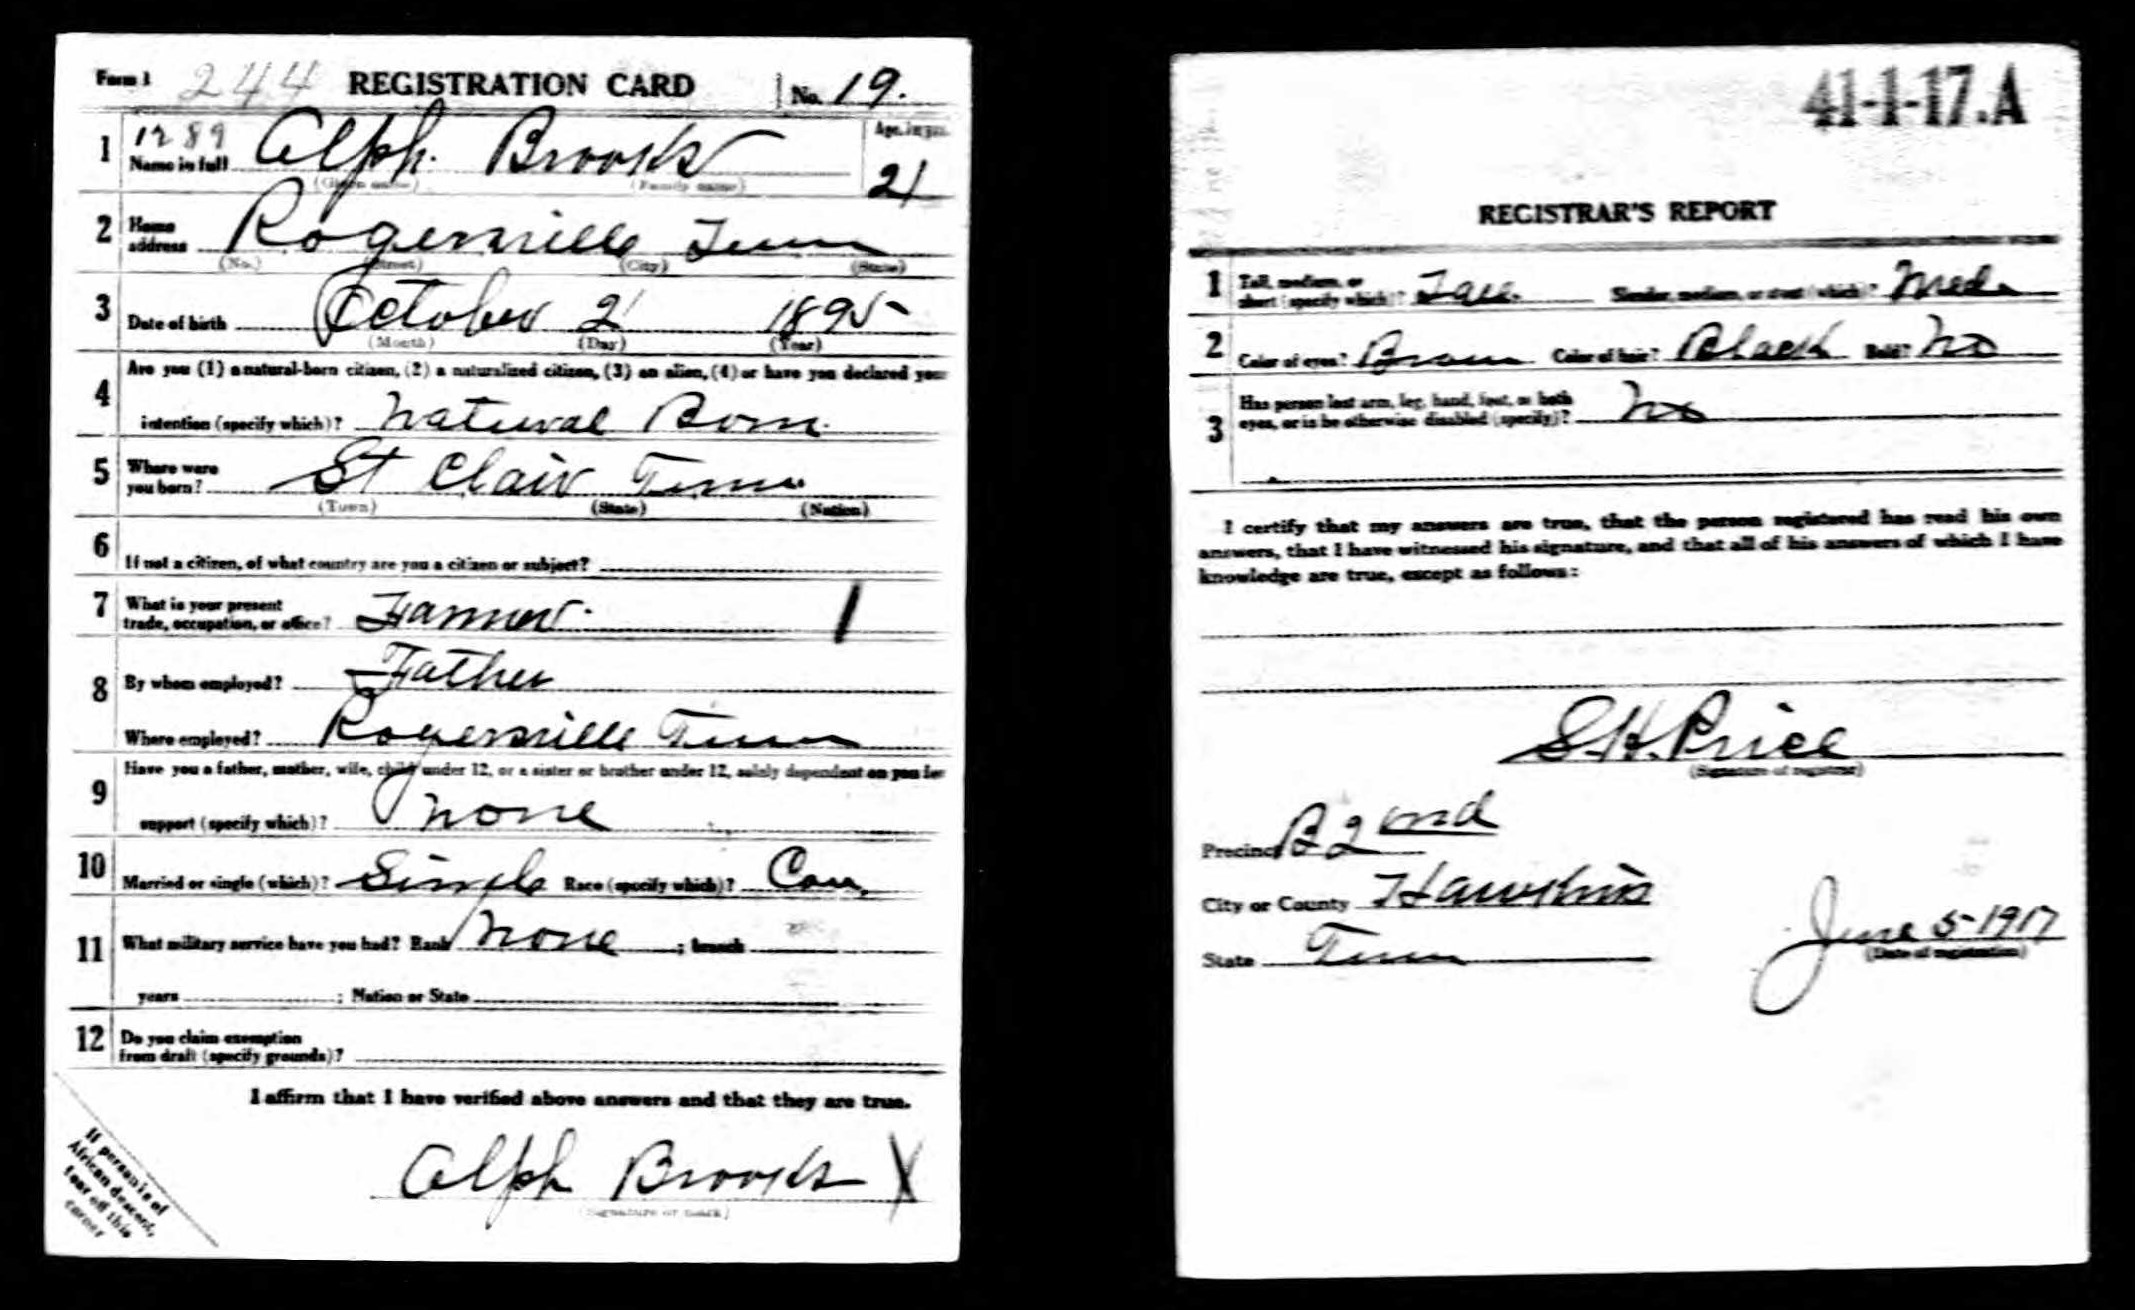 Form 1 244 REGISTRATION CARD No. 19.
1 1289 Name in full Alph. Brooks Age, in yrs. 21
(Given name) (Family name)
2 Home address Rogersville Tenn
(No.) (Street) (City) (State)
3 Date of birth October 2 1895
(Month) (Day) (Year)
4 Are you (1) a natural-born citizen, (2) a naturalized citizen, (3) an alien, (4) or have you declared your
intention (specify which)? Natural Born.
5 Where were you born? St Clair Tenn
(Town) (State) (Nation)
6 If not a citizen, of what country are you a citizen or subject?
7 What is your present trade, occupation, or office? Farmer. 1
8 By whom employed? Father
Where employed? Rogersville Tenn
9 Have you a father, mother, wife, child under 12, or a sister or brother under 12, solely dependent on you for
support (specify which)? None
10 Married or single (which)? Single Race (specify which)? Cau,
11 What military service have you had? Rank None ; branch
years ; Nation or State
12 Do you claim exemption from draft (specify grounds)?
I affirm that I have verified above answers and that they are true.
Alph Brooks X
(Signature or mark)
If person is of
African descent,
tear off this
corner
41-1-17.A
REGISTRAR'S REPORT
1 Tall, medium, or short (specify which)? Tall. Slender, medium, or stout (which)? Med.
2 Color of eyes? Brown Color of hair? Black Bald? No
3 Has person lost arm, leg, hand, foot, or both
eyes, or is he otherwise disabled (specify)? No
I certify that my answers are true, that the person registered has read his own
answers, that I have witnessed his signature, and that all of his answers of which I have
knowledge are true, except as follows:
S.H. Price
(Signature of registrar)
Precinct B 2 nd
City or County Hawkins
State Tenn
June 5-1917
(Date of registration)